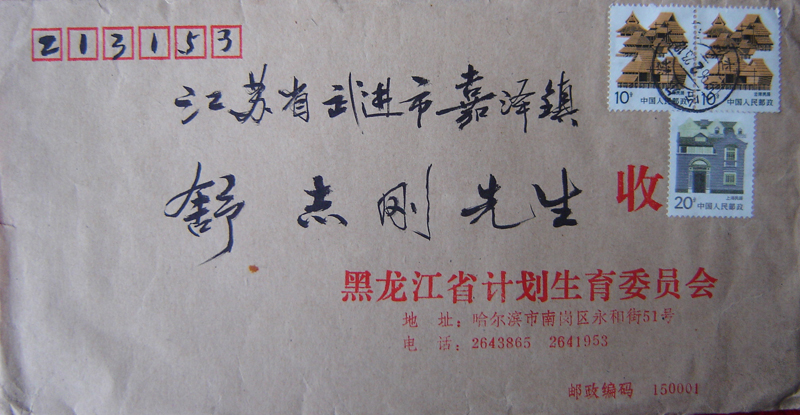 213153
江苏省武进市嘉泽镇
舒志刚先生 收
黑龙江省计划生育委员会
地 址:哈尔滨市南岗区永和街51号
电 话:2643865 2641953
邮政编码 150001
10分 中国人民邮政
10分 中国人民邮政
20分 中国人民邮政
上海民居